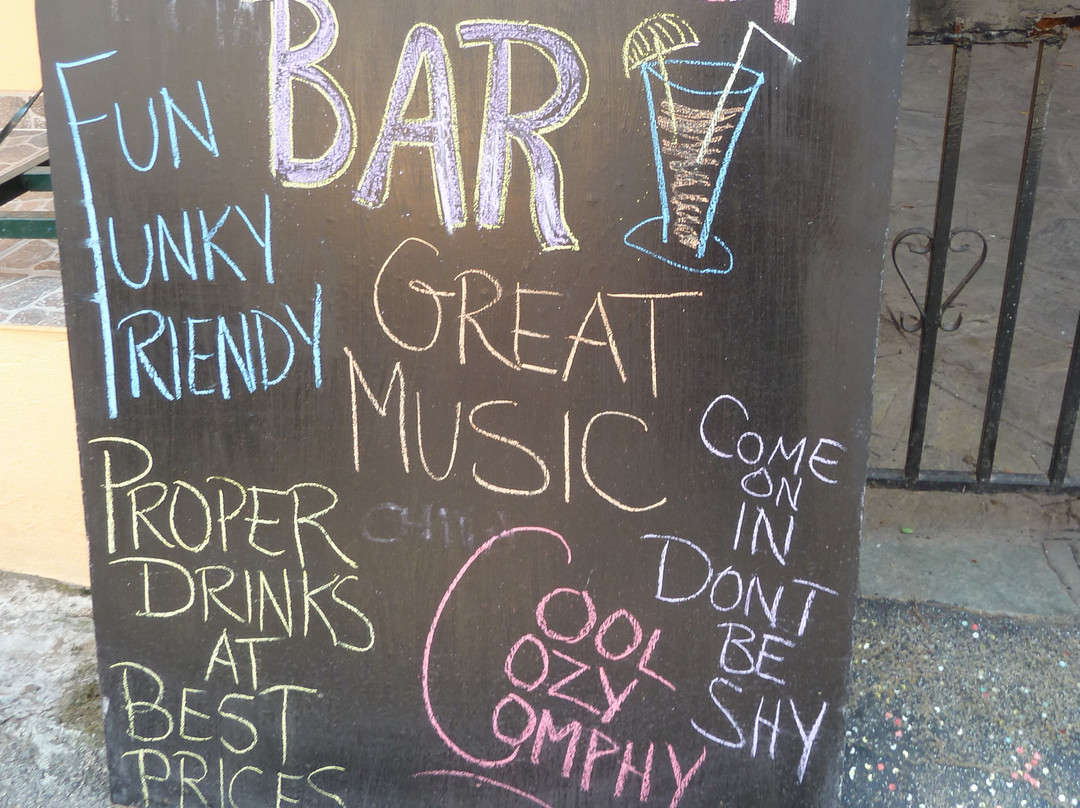 BAR
FUN
FUNKY
FRIENDY
GREAT
MUSIC
PROPER
DRINKS
AT
BEST
PRICES
COOL
COZY
COMPHY
COME
ON
IN
DONT
BE
SHY